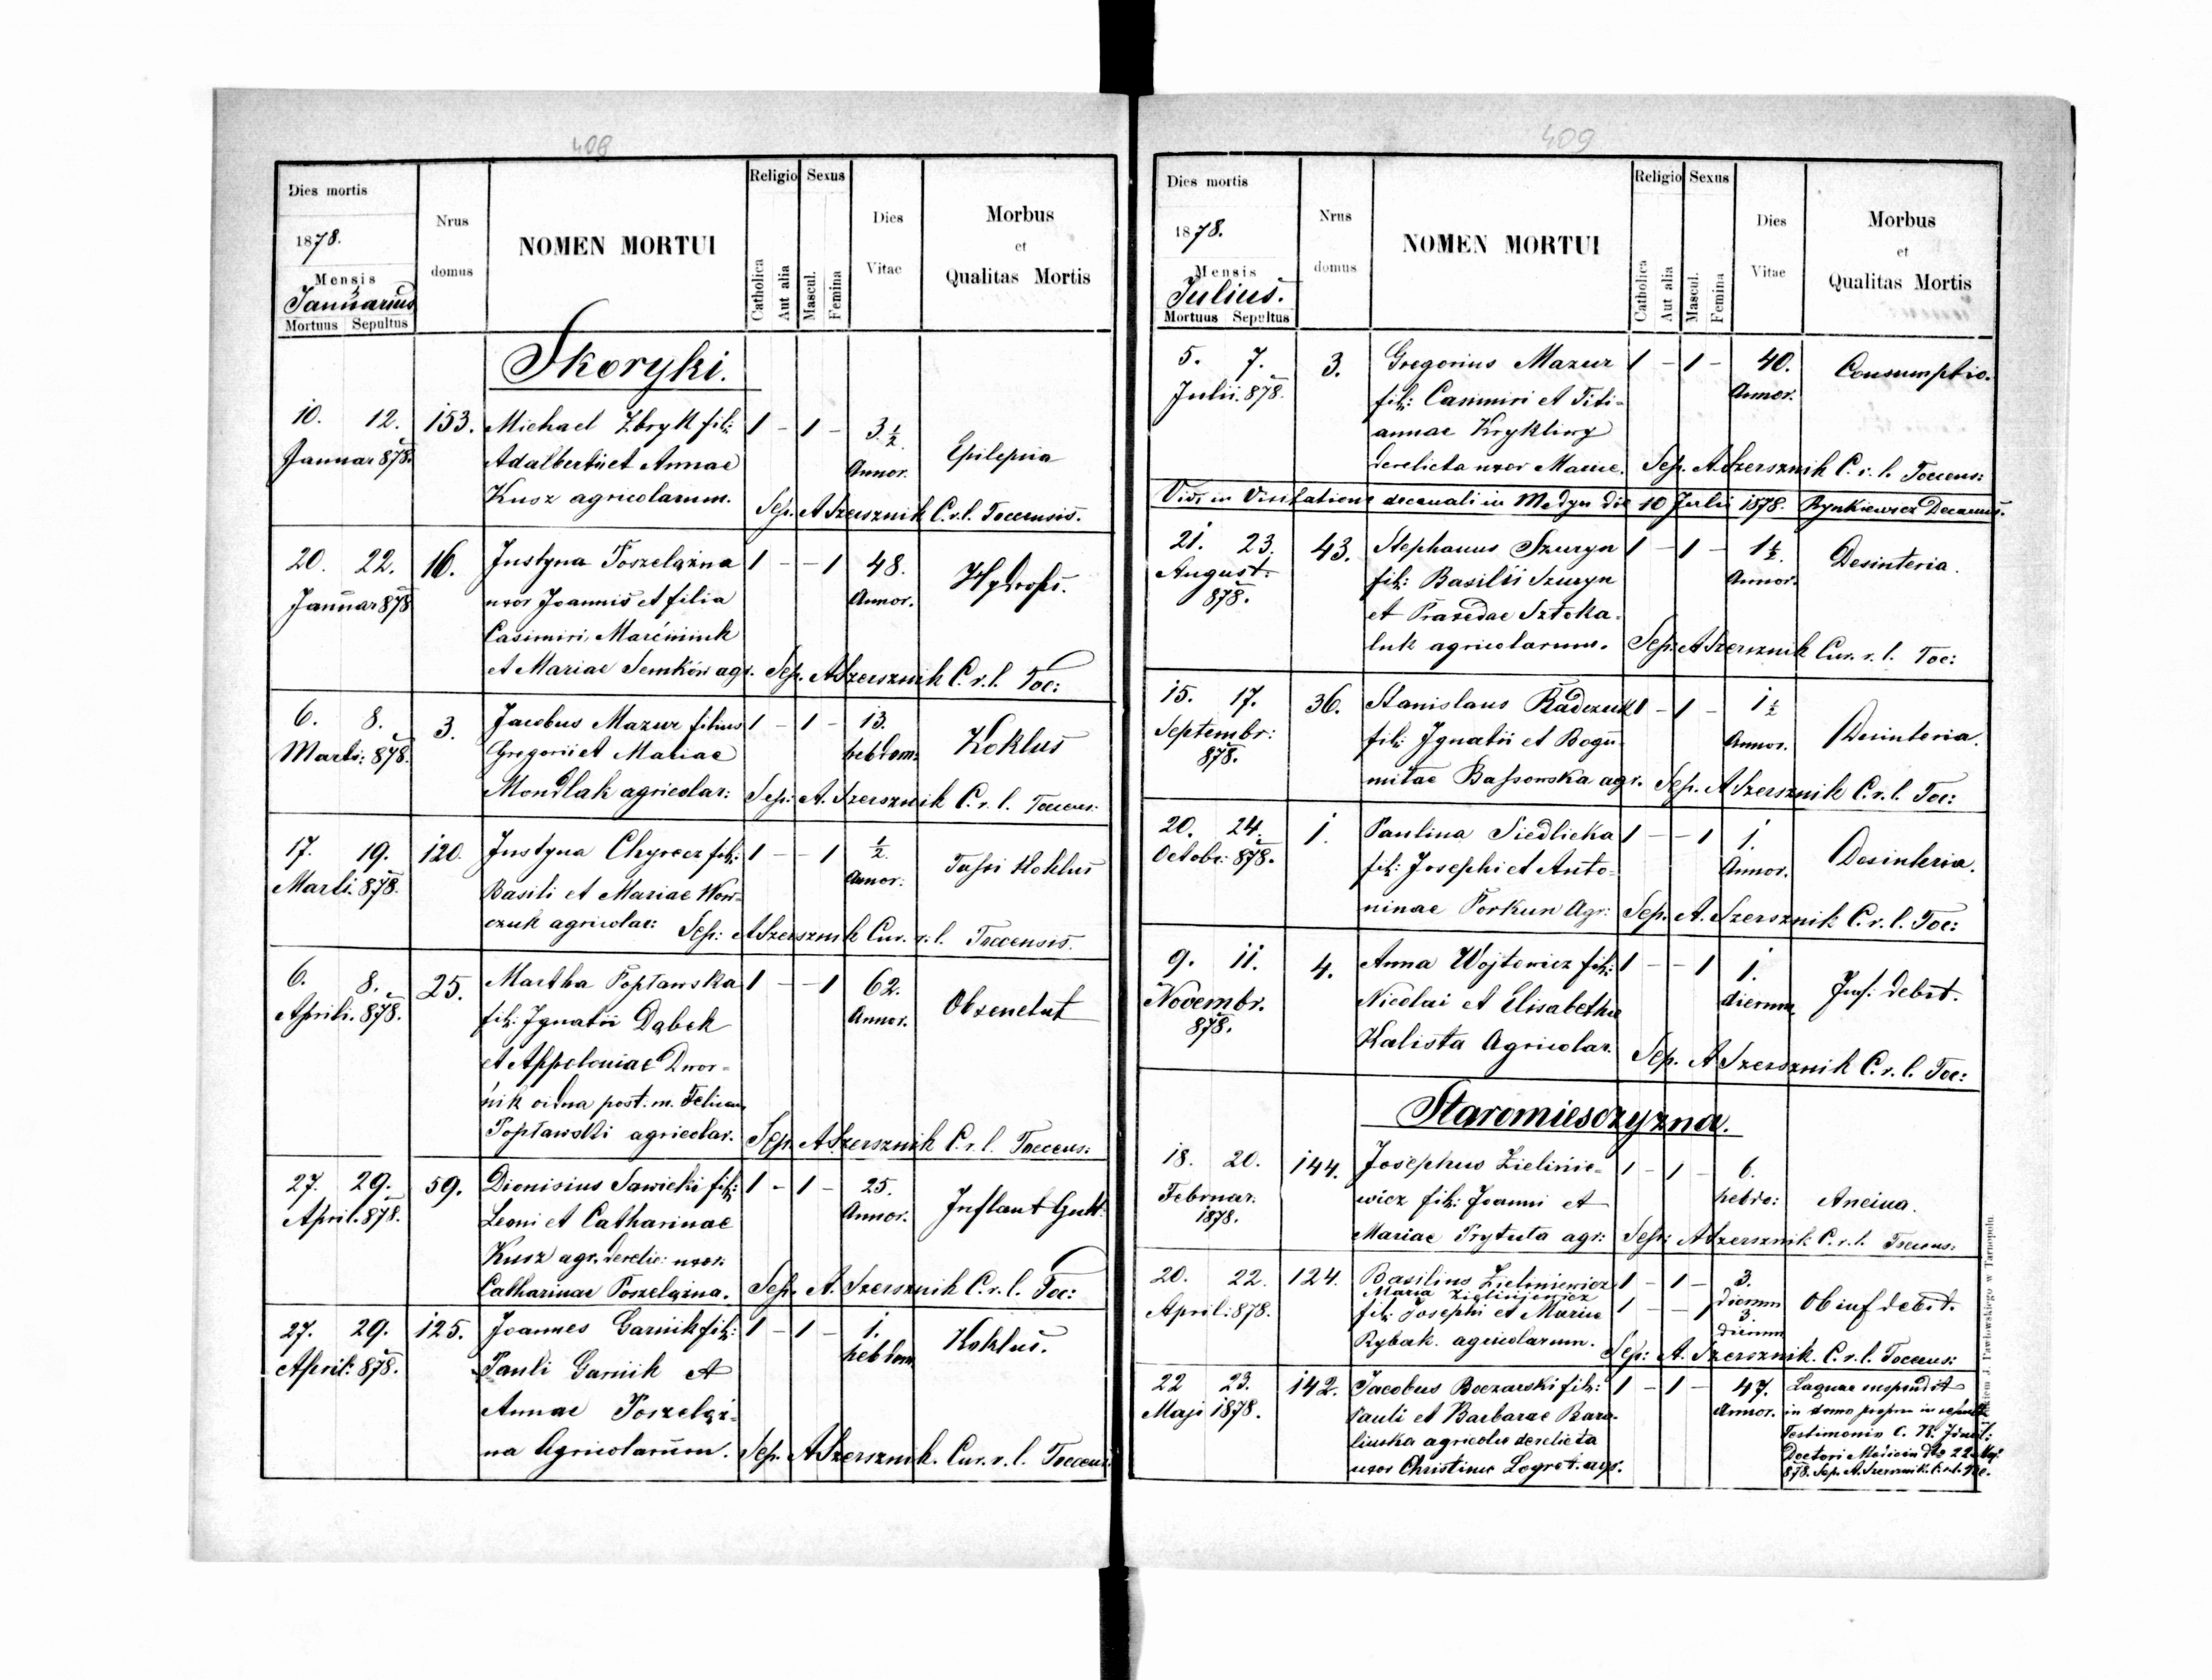 408
Dies mortis
1878.
Mensis
Januarius
Mortuus Sepultus
Nrus
domus
NOMEN MORTUI
Religio
Catholica
Aut alia
Sexus
Mascul.
Femina
Dies
Vitae
Morbus
et
Qualitas Mortis
Skoryki.
10. 12. 153. Michael Zbryk fil: 1 - 1 - 3 1/2
Januar 878. Adalberti et Annae Annor. Epilepsia
Kusz agricolarum. Sep. A Szersznik C.r.l. Tocensis.
20. 22. 16. Justyna Poszelązna 1 - - 1 48. Hydrops.
Januar 878 uxor Joannis et filia Annor.
Casimiri Marciniuk
et Mariae Semków agr. Sep. A Szersznik C.r.l. Toc:
6. 8. 3. Jacobus Mazur filius 1 - 1 - 13. Koklus
Marti: 878. Gregorii et Mariae hebdom:
Mondlak agricolar: Sep: A. Szersznik C.r.l. Tocens:
17. 19. 120. Justyna Chyrcez fil: 1 - - 1 1/2 Tussi Koklus
Marti. 878. Basili et Mariae Wow- Annor:
czuk agricolar: Sep: A Szersznik Cur. r.l. Tocensis.
6. 8. 25. Martha Popławska 1 - - 1 62. Ob senetut
Aprili. 878. fil: Ignatii Dąbek Annor.
et Appoloniae Dwor-
nik vidua post. m. Felician
Popławski agricolar. Sep. A Szersznik C.r.l. Tocens:
27. 29. 59. Dionisius Sawicki fil: 1 - 1 - 25.
April. 878. Leoni et Catharinae Annor. Inflant Gutt.
Kusz agr. derelic: uxor:
Catharinae Poszelązna. Sep. A. Szersznik C.r.l. Toc:
27. 29. 125. Joannes Garnik fil: 1 - 1 - 1. Koklus.
April: 878. Pauli Garnik et hebdom
Annae Poszeląz-
na Agricolarum. Sep. A Szersznik. Cur. r.l. Tocens:
409
Dies mortis
1878.
Mensis
Julius.
Mortuus Sepultus
Nrus
domus
NOMEN MORTUI
Religio
Catholica
Aut alia
Sexus
Mascul.
Femina
Dies
Vitae
Morbus
et
Qualitas Mortis
5. 7. 3. Gregorius Mazur 1 - 1 - 40. Consumptio.
Julii. 878. fil: Casimiri et Titi- Annor.
annae Krykliwy
derelicta uxor Mariae. Sep. A Szersznik C.r.l. Tocens:
Vidi in Visitatione decanali in Medyn die 10 Julii 1878. Rynkiewicz Decanus.
21. 23. 43. Stephanus Szuryn 1 - 1 - 1 1/2 Desinteria.
August: fil: Basilii Szuryn Annor.
878. et Praxedae Sztoka-
luk agricolarum. Sep: A Szersznik Cur. r.l. Toc:
15. 17. 36. Stanislaus Radczuk 1 - 1 - 1 1/2
Septembr: fil: Ignatii et Bogu- Annor. Desinteria.
878. miłae Bassowska agr. Sep. A Szersznik C.r.l. Toc:
20. 24. 1. Paulina Siedlicka 1 - - 1 1.
Octobr: 878. fil: Josephi et Anto- Annor. Desinteria.
ninae Porkun Agr: Sep. A. Szersznik C.r.l. Toc:
9. 11. 4. Anna Wojtowicz fil: 1 - - 1 1. Inf. debit.
Novembr. Nicolai et Elisabethae dierum
878. Kalista Agricolar. Sep. A Szersznik C.r.l. Toc:
Staromiesczyzna.
18. 20. 144. Josephus Zielinie- 1 - 1 - 6.
Februar. wicz fil: Joanni et hebdo: Ancina.
1878. Mariae Prytuta agr: Sep: A Szersznik C.r.l. Tocens:
20. 22. 124. Basilius Zieliniewicz 1 - 1 - 3. dierum
Maria Zieliniewicz
April: 878. fil: Josephi et Mariae 1 - - 1 3. dierum Ob inf debit.
Rybak. agricolarum. Sep: A. Szersznik. C.r.l. Tocens:
22 23. 142. Jacobus Boczarski fil: 1 - 1 - 47. Laquae suspendit
Maji 1878. Pauli et Barbarae Annor. in domo propra in
agricolae derelicta Testimonio C. R.
uxor Christinae agr. Doctori Medicin dto 22 Maji
878. Sep. A. Szersznik. C.r.l. Toc.
J. Pawłowskiego w Tarnopolu